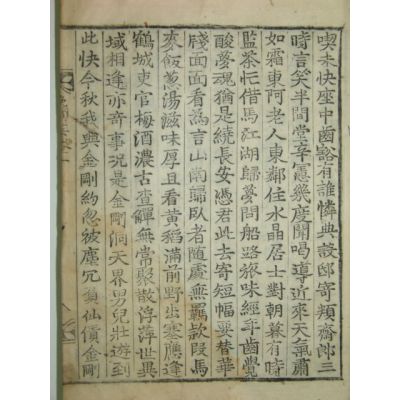 喫未快座中齒豁有誰憐典設邸寄頬齋郎三
時言笑半間堂辛憲幾度開喝導近來天氣肅
如霜東阿老人東鄰住水晶居士對朝暮有時
監茶忙借馬江湖歸夢問船路旅味經年齒覺
酸夢魂猶是繞長安憑君此去寄短幅要替華
牋面面看為言山南歸臥者隨處無羈款段馬
麥飯葱湯滋味厚且看黃稻滿前野出塞鴈逢
鶴城吏官梅酒濃古査罈無常聚散浮萍世異
域相逢亦音事況是金剛洞天界男兒壯遊到
此快今秋我與金剛約忽被塵冗負仙債金剛